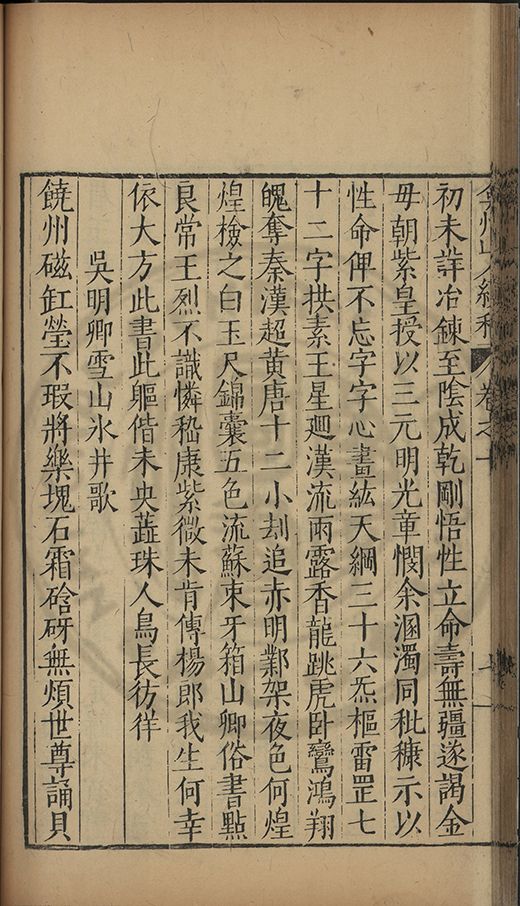 弇州山人續稿 卷之十
初未許冶鍊至陰成乾剛悟性立命壽無疆遂謁金
母朝紫皇授以三元明光章憫余溷濁同秕糠示以
性命俾不忘字字心畫紘天綱三十六炁樞雷罡七
十二字拱素王星廻漢流雨露香龍跳虎卧鸞鴻翔
魄奪秦漢超黃唐十二小刦追赤明鄴架夜色何煌
煌檢之白玉尺錦囊五色流蘇束牙箱山卿俗書點
良常王烈不識憐嵇康紫微未肯傳楊郎我生何幸
依大方此書此軀偕未央蕋珠人鳥長彷徉
吳明卿雪山氷井歌
饒州磁缸瑩不瑕將樂塊石霜硞砑無煩世尊誦貝